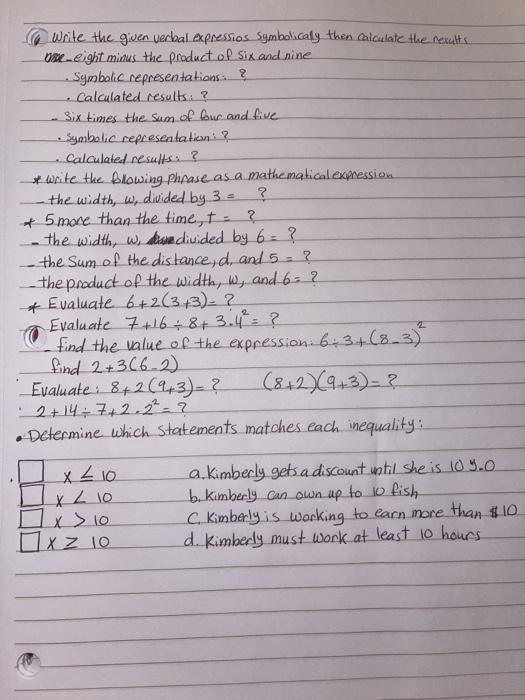 Write the given verbal expressios symbolicaly then calculate the results
- eight minus the product of six and nine
. Symbolic representations: ?
. Calculated results: ?
- Six times the sum of four and five
. Symbolic representation: ?
. Calculated results: ?
* write the following phrase as a mathematical expression
- the width, w, divided by 3 = ?
* 5 more than the time, t = ?
- the width, w, divided by 6 = ?
- the Sum of the distance, d, and 5 = ?
- the product of the width, w, and 6 = ?
* Evaluate 6+2(3+3)= ?
Evaluate 7+16÷8+3.4²= ?
- find the value of the expression: 6÷3+(8-3)²
find 2+3(6-2)
Evaluate: 8+2(9+3)= ? (8+2)(9+3)= ?
: 2+14÷7+2.2²= ?
• Determine which statements matches each inequality:
. x ≤ 10 a. Kimberly gets a discount until she is 10 y.o
x < 10 b. Kimberly can own up to 10 fish
x > 10 c. Kimberly is working to earn more than $10
x ≥ 10 d. Kimberly must work at least 10 hours